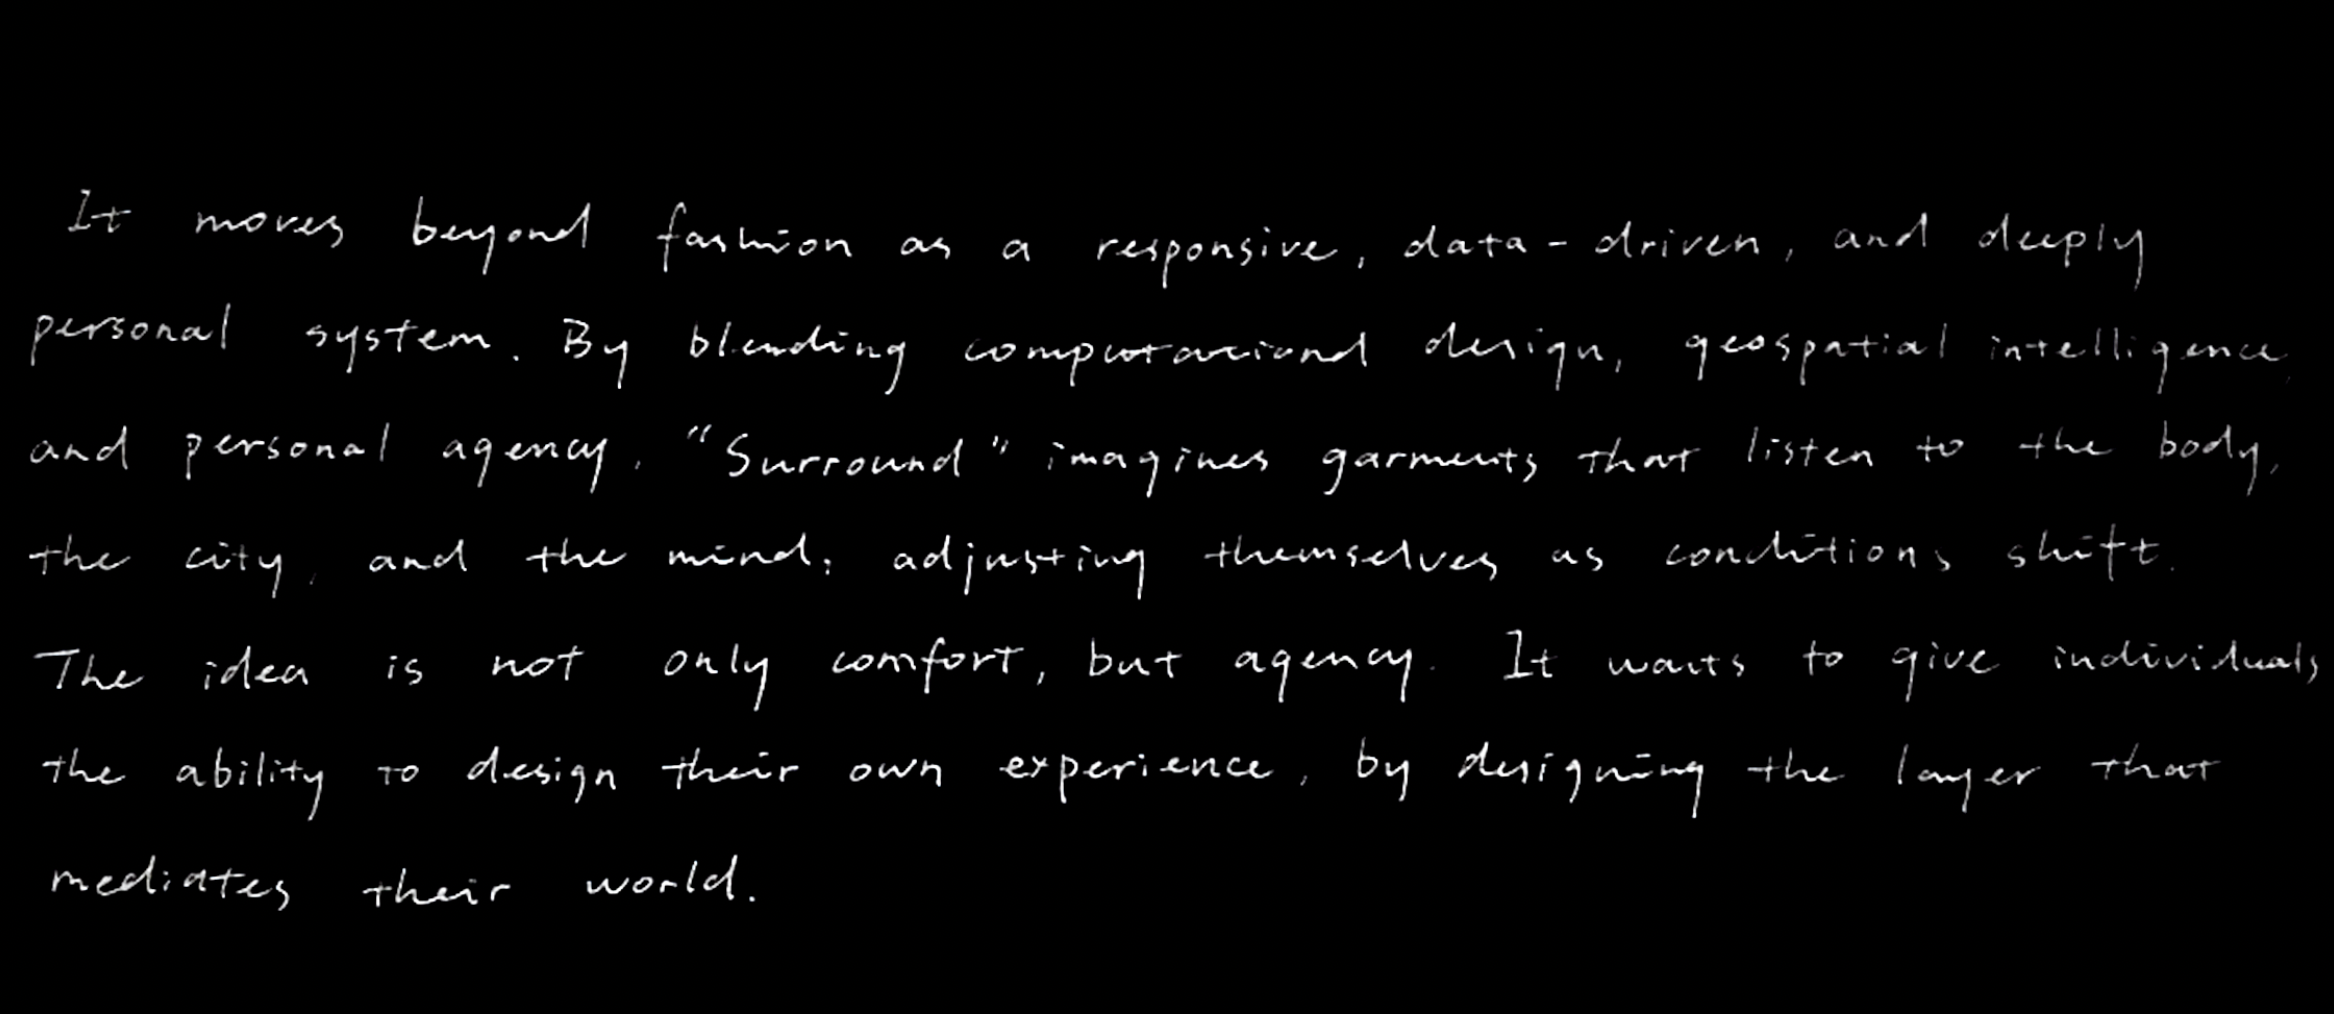 It moves beyond fashion as a responsive, data-driven, and deeply
personal system. By blending computational design, geospatial intelligence,
and personal agency, "Surround" imagines garments that listen to the body,
the city, and the mind; adjusting themselves as conditions shift.
The idea is not only comfort, but agency. It wants to give individuals
the ability to design their own experience, by designing the layer that
mediates their world.